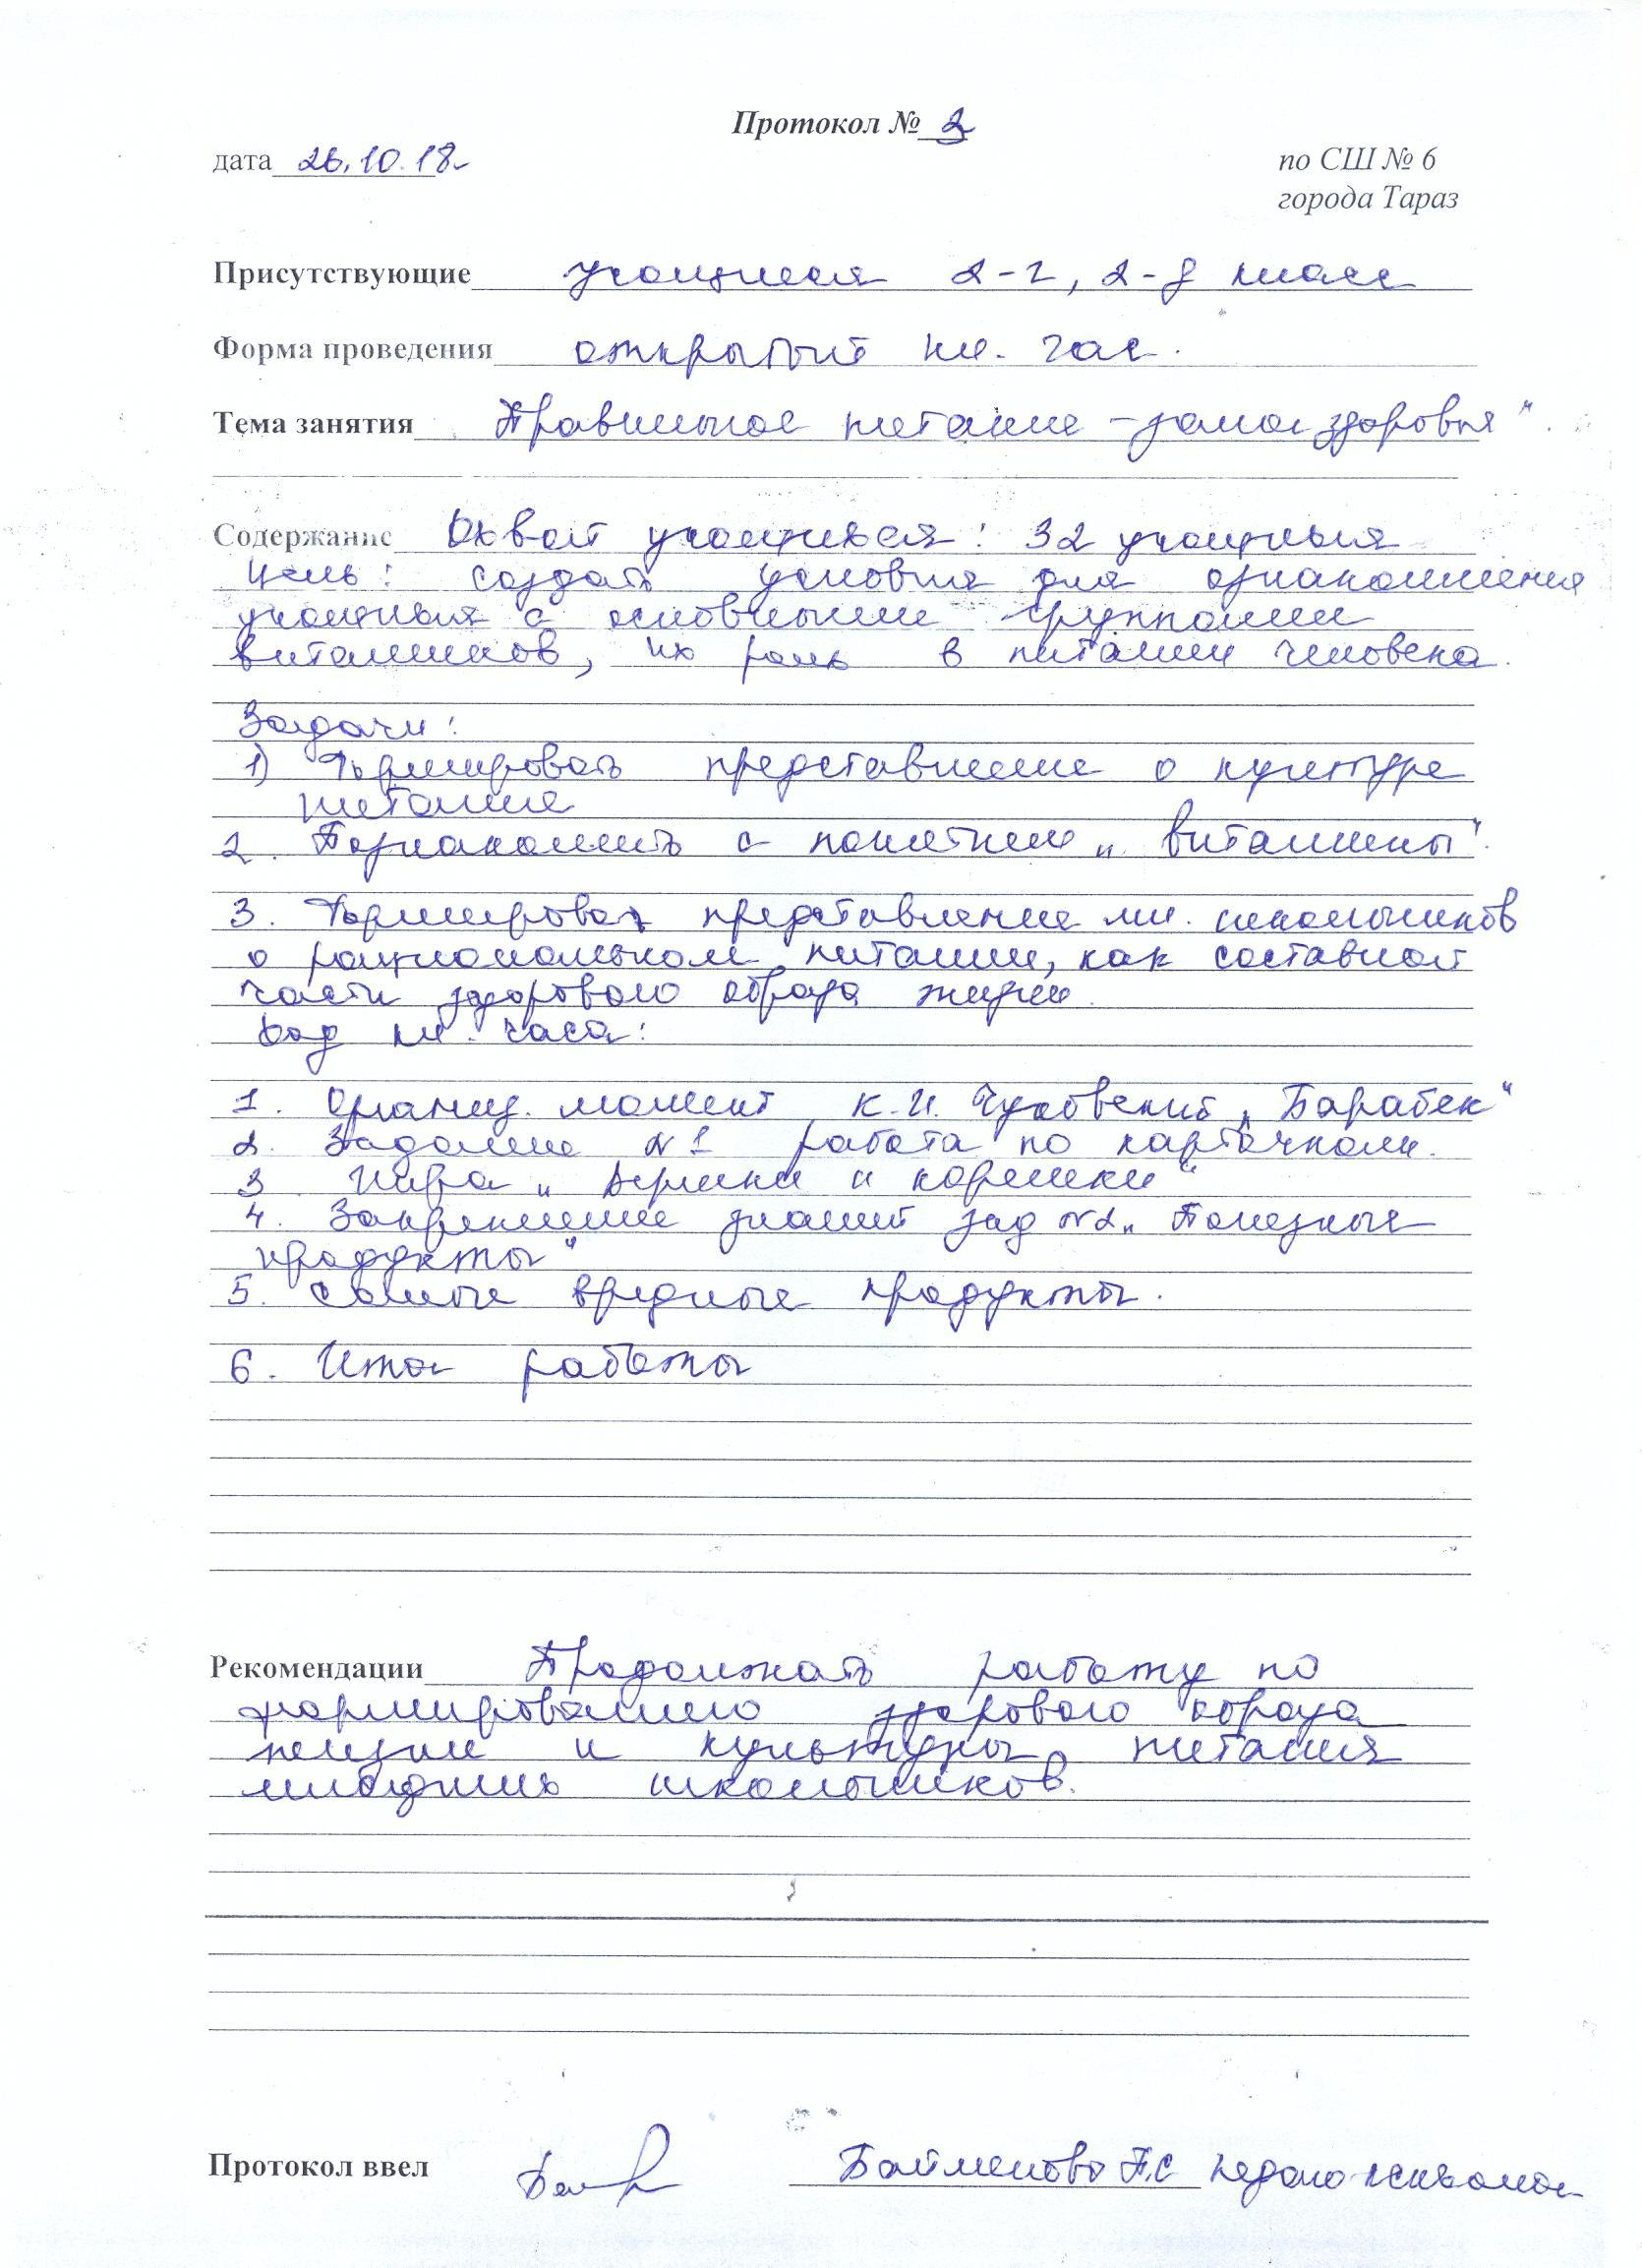 Протокол № 2
дата 26.10.18
по СШ № 6
города Тараз
Присутствующие учащиеся 2-г, 2-д класс
Форма проведения открытый кл. час.
Тема занятия „Правильное питание – залог здоровья".
Содержание Охват учащихся: 32 учащихся
Цель: создать условия для ознакомления
учащихся с основными группами
витаминов, их роль в питании человека.
Задачи:
1) Формировать представление о культуре
питание
2. Познакомить с понятием „витамины".
3. Формировать представление мл. школьников
о рациональном питании, как составной
части здорового образа жизни.
Ход кл. часа:
1. Организ. момент К.И. Чуковский „Барабек"
2. Задание №1 работа по карточкам.
3. Игра „Вершки и корешки"
4. Закрепление знаний зад №2 „Полезные
продукты"
5. Самые вредные продукты.
6. Итог работы
Рекомендации Продолжать работу по
формированию здорового образа
жизни и культуры питания
младших школьников.
Протокол ввел Байменова П.С педагог-психолог